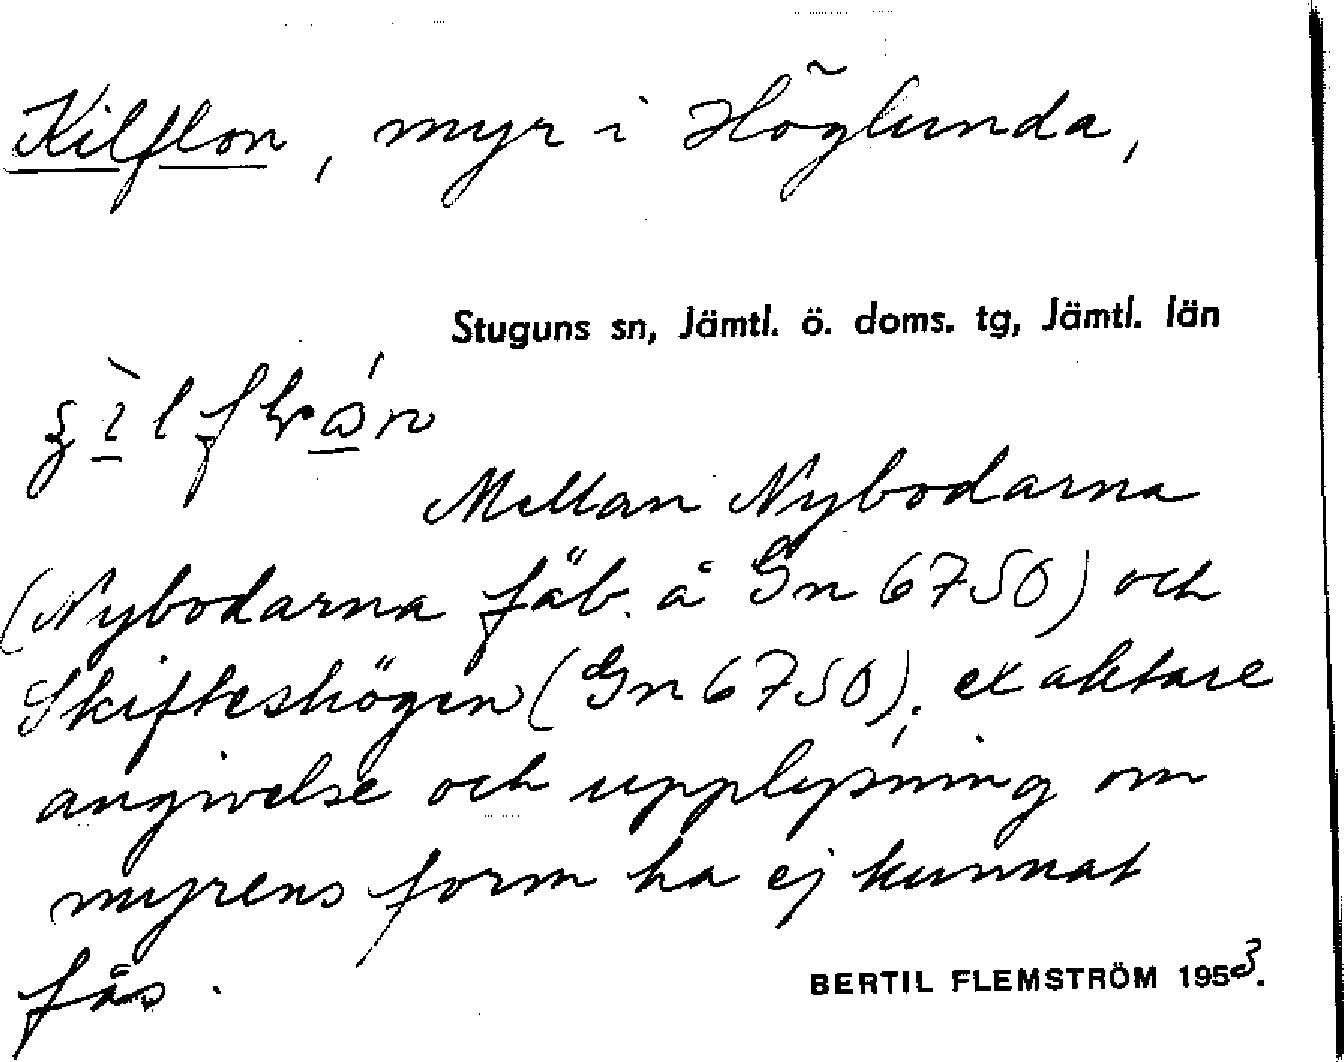 Kilflon, myr i Höglunda,
Stuguns sn, Jämtl. ö. doms. tg, Jämtl. län
Mellan Nybodarna
(Nybodarna fäb. å Gn 6750) och
Skifteshögen (Gn 6750); exaktare
angivelse och upplysning om
myrens form ha ej kunnat
fås.
BERTIL FLEMSTRÖM 1953.